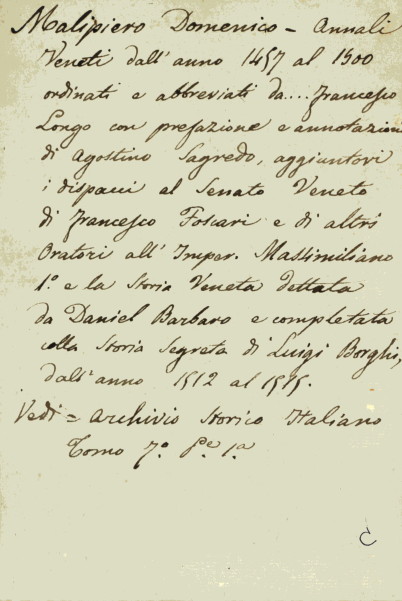 Malipiero Domenico – Annali
Veneti dall'anno 1457 al 1500
ordinati e abbreviati da... Francesco
Longo con prefazione e annotazioni
di Agostino Sagredo, aggiuntovi
i dispacci al Senato Veneto
di Francesco Foscari e di altri
Oratori all'Imper. Massimiliano
1.º e la Storia Veneta dettata
da Daniel Barbaro e completata
colla Storia Segreta di Luigi Borghi,
dall'anno 1512 al 1515.
Vedi = Archivio Storico Italiano
Tomo 7.º P.e 1.a
C